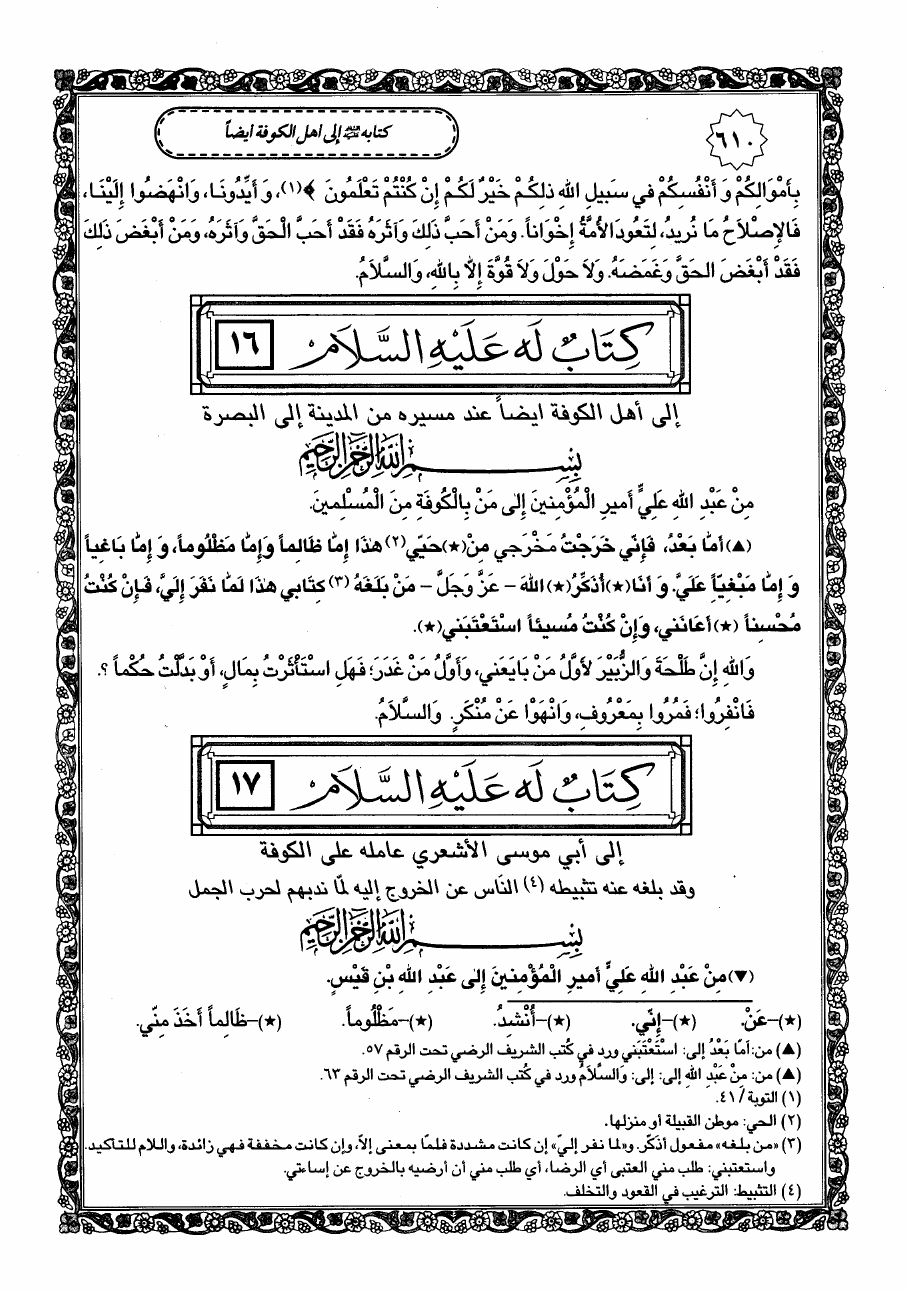 ٦١٠
كتابه ﷺ إلى أهل الكوفة أيضاً
بِأَمْوَالِكُمْ وَ أَنْفُسِكُمْ في سَبيلِ اللهِ ذلِكُمْ خَيْرٌ لَكُمْ إِنْ كُنْتُمْ تَعْلَمُونَ ﴾(١)، وَ أَيِّدُونَـا، وَانْهَضُوا إِلَيْنَـا،
فَالإِصْلاَحُ مَا نُريدُ، لِتَعُودَ الأُمَّةُ إِخْوَاناً. وَمَنْ أَحَبَّ ذلِكَ وَآثَرَهُ فَقَدْ أَحَبَّ الْحَقَّ وَآثَرَهُ، وَمَنْ أَبْغَضَ ذلِكَ
فَقَدْ أَبْغَضَ الحَقَّ وَغَمَضَهُ. وَلاَ حَوْلَ وَلاَ قُوَّةَ إِلاَّ بِاللهِ، وَالسَّلاَمُ.
كِتَابٌ لَه عَلَيْهِ السَّلاَم ١٦
إلى أهل الكوفة ايضاً عند مسيره من المدينة إلى البصرة
بِسْمِ اللهِ الرَّحْمنِ الرَّحيمِ
مِنْ عَبْدِ اللهِ عَلِيٍّ أَميرِ الْمُؤْمِنينَ إِلى مَنْ بِالْكُوفَةِ مِنَ الْمُسْلِمينَ.
(▲) أَمّا بَعْدُ، فَإِنّي خَرَجْتُ مَخْرَجي مِنْ(★)حَيّي(٢) هذَا إِمّا ظَالِماً وَإِمّا مَظْلُوماً، وَ إِمّا بَاغِياً
وَ إِمّا مَبْغِيّاً عَلَيَّ. وَ أَنَا(★)أُذَكِّرُ(★)اللهَ – عَزَّ وَجَلَّ – مَنْ بَلَغَهُ (٣) كِتَابي هذَا لَمّا نَفَرَ إِلَيَّ، فَإِنْ كُنْتُ
مُحْسِناً (★)أَعَانَني، وَإِنْ كُنْتُ مُسيئاً اسْتَعْتَبَني(★).
وَاللهِ إِنَّ طَلْحَةَ وَالزُّبَيْرَ لأَوَّلُ مَنْ بَايَعَني، وَأَوَّلُ مَنْ غَدَرَ؛ فَهَلِ اسْتَأْثَرْتُ بِمَالٍ، أَوْ بَدَّلْتُ حُكْماً ؟.
فَانْفِرُوا؛ فَمُرُوا بِمَعْرُوفٍ، وَانْهَوْا عَنْ مُنْكَرٍ. وَالسَّلاَمُ.
كِتَابٌ لَه عَلَيْهِ السَّلاَم ١٧
إلى أبي موسى الأشعري عامله على الكوفة
وقد بلغه عنه تثبيطه (٤) النّاس عن الخروج إليه لمّا ندبهم لحرب الجمل
بِسْمِ اللهِ الرَّحْمنِ الرَّحيمِ
(▼)مِنْ عَبْدِ اللهِ عَلِيٍّ أَميرِ الْمُؤْمِنينَ إِلى عَبْدِ اللهِ بْنِ قَيْسٍ.
(★)–عَنْ. (★)–إِنّي. (★)–أُنْشِدُ. (★)–مَظْلُوماً. (★)–ظَالِماً أَخَذَ مِنّي.
(▲) من: أَمّا بَعْدُ إلى: اسْتَعْتَبَني ورد في كُتب الشريف الرضي تحت الرقم ٥٧.
(▲) من: مِنْ عَبْدِ اللهِ إلى: إلى: وَالسَّلاَمُ ورد في كُتب الشريف الرضي تحت الرقم ٦٣.
(١) التوبة / ٤١.
(٢) الحي: موطن القبيلة أو منزلها.
(٣) «من بلغه» مفعول أذكّر. و«لما نفر إليّ» إن كانت مشددة فلمّا بمعنى إلاّ، وإن كانت مخففة فهي زائدة، واللام للتاكيد.
واستعتبني: طلب مني العتبى أي الرضا، أي طلب مني أن أرضيه بالخروج عن إساءتي.
(٤) التثبيط: الترغيب في القعود والتخلف.